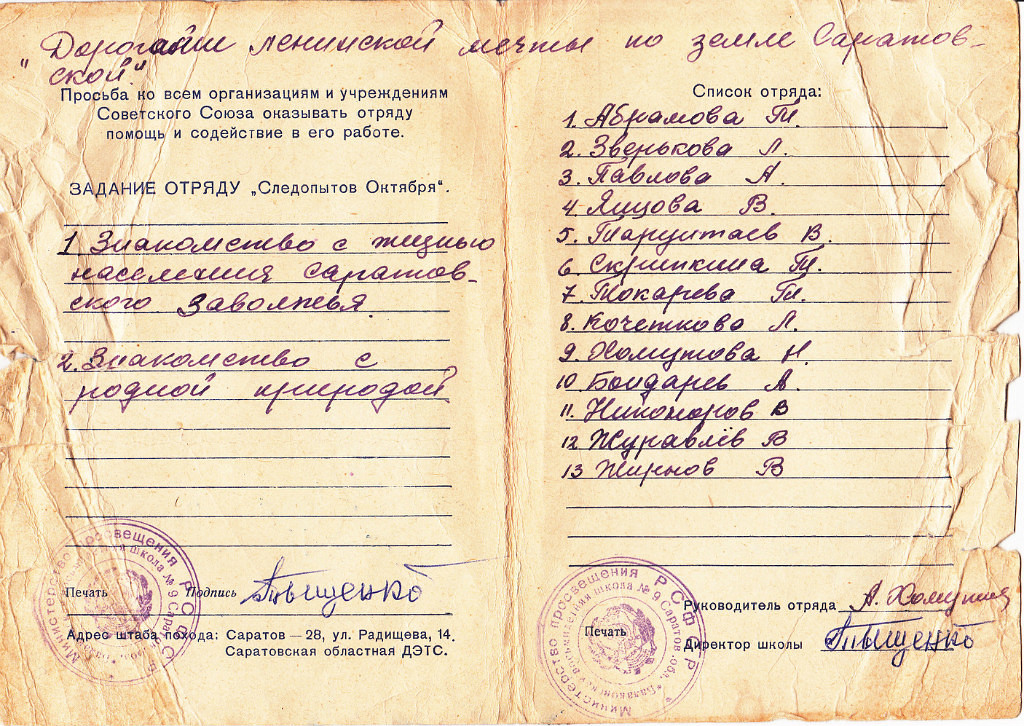 "Дорогами ленинской мечты по земле Саратов-
ской."
Просьба ко всем организациям и учреждениям
Советского Союза оказывать отряду
помощь и содействие в его работе.
ЗАДАНИЕ ОТРЯДУ „Следопытов Октября“.
1. Знакомство с жизнью
населения саратов-
ского Заволжья.
2. Знакомство с
родной природой
Министерство просвещения РСФСР
школа № 9 Саратов
Печать
Подпись
Тыщенко
Адрес штаба похода: Саратов — 28, ул. Радищева, 14.
Саратовская областная ДЭТС.
Список отряда:
1. Абрамова Т.
2. Зверькова Л.
3. Павлова А.
4 Яицова В.
5. В.
6. Скрипкина Т.
7. Токарева Т.
8. Кочеткова Л.
9. Хомутова Н
10 Бондарев А.
11. Никоноров В
12 Журавлёв В
13 Жирнов В
Министерство просвещения РСФСР
школа № 9 Саратов. обл.
Печать
Руководитель отряда А.
Директор школы Тыщенко